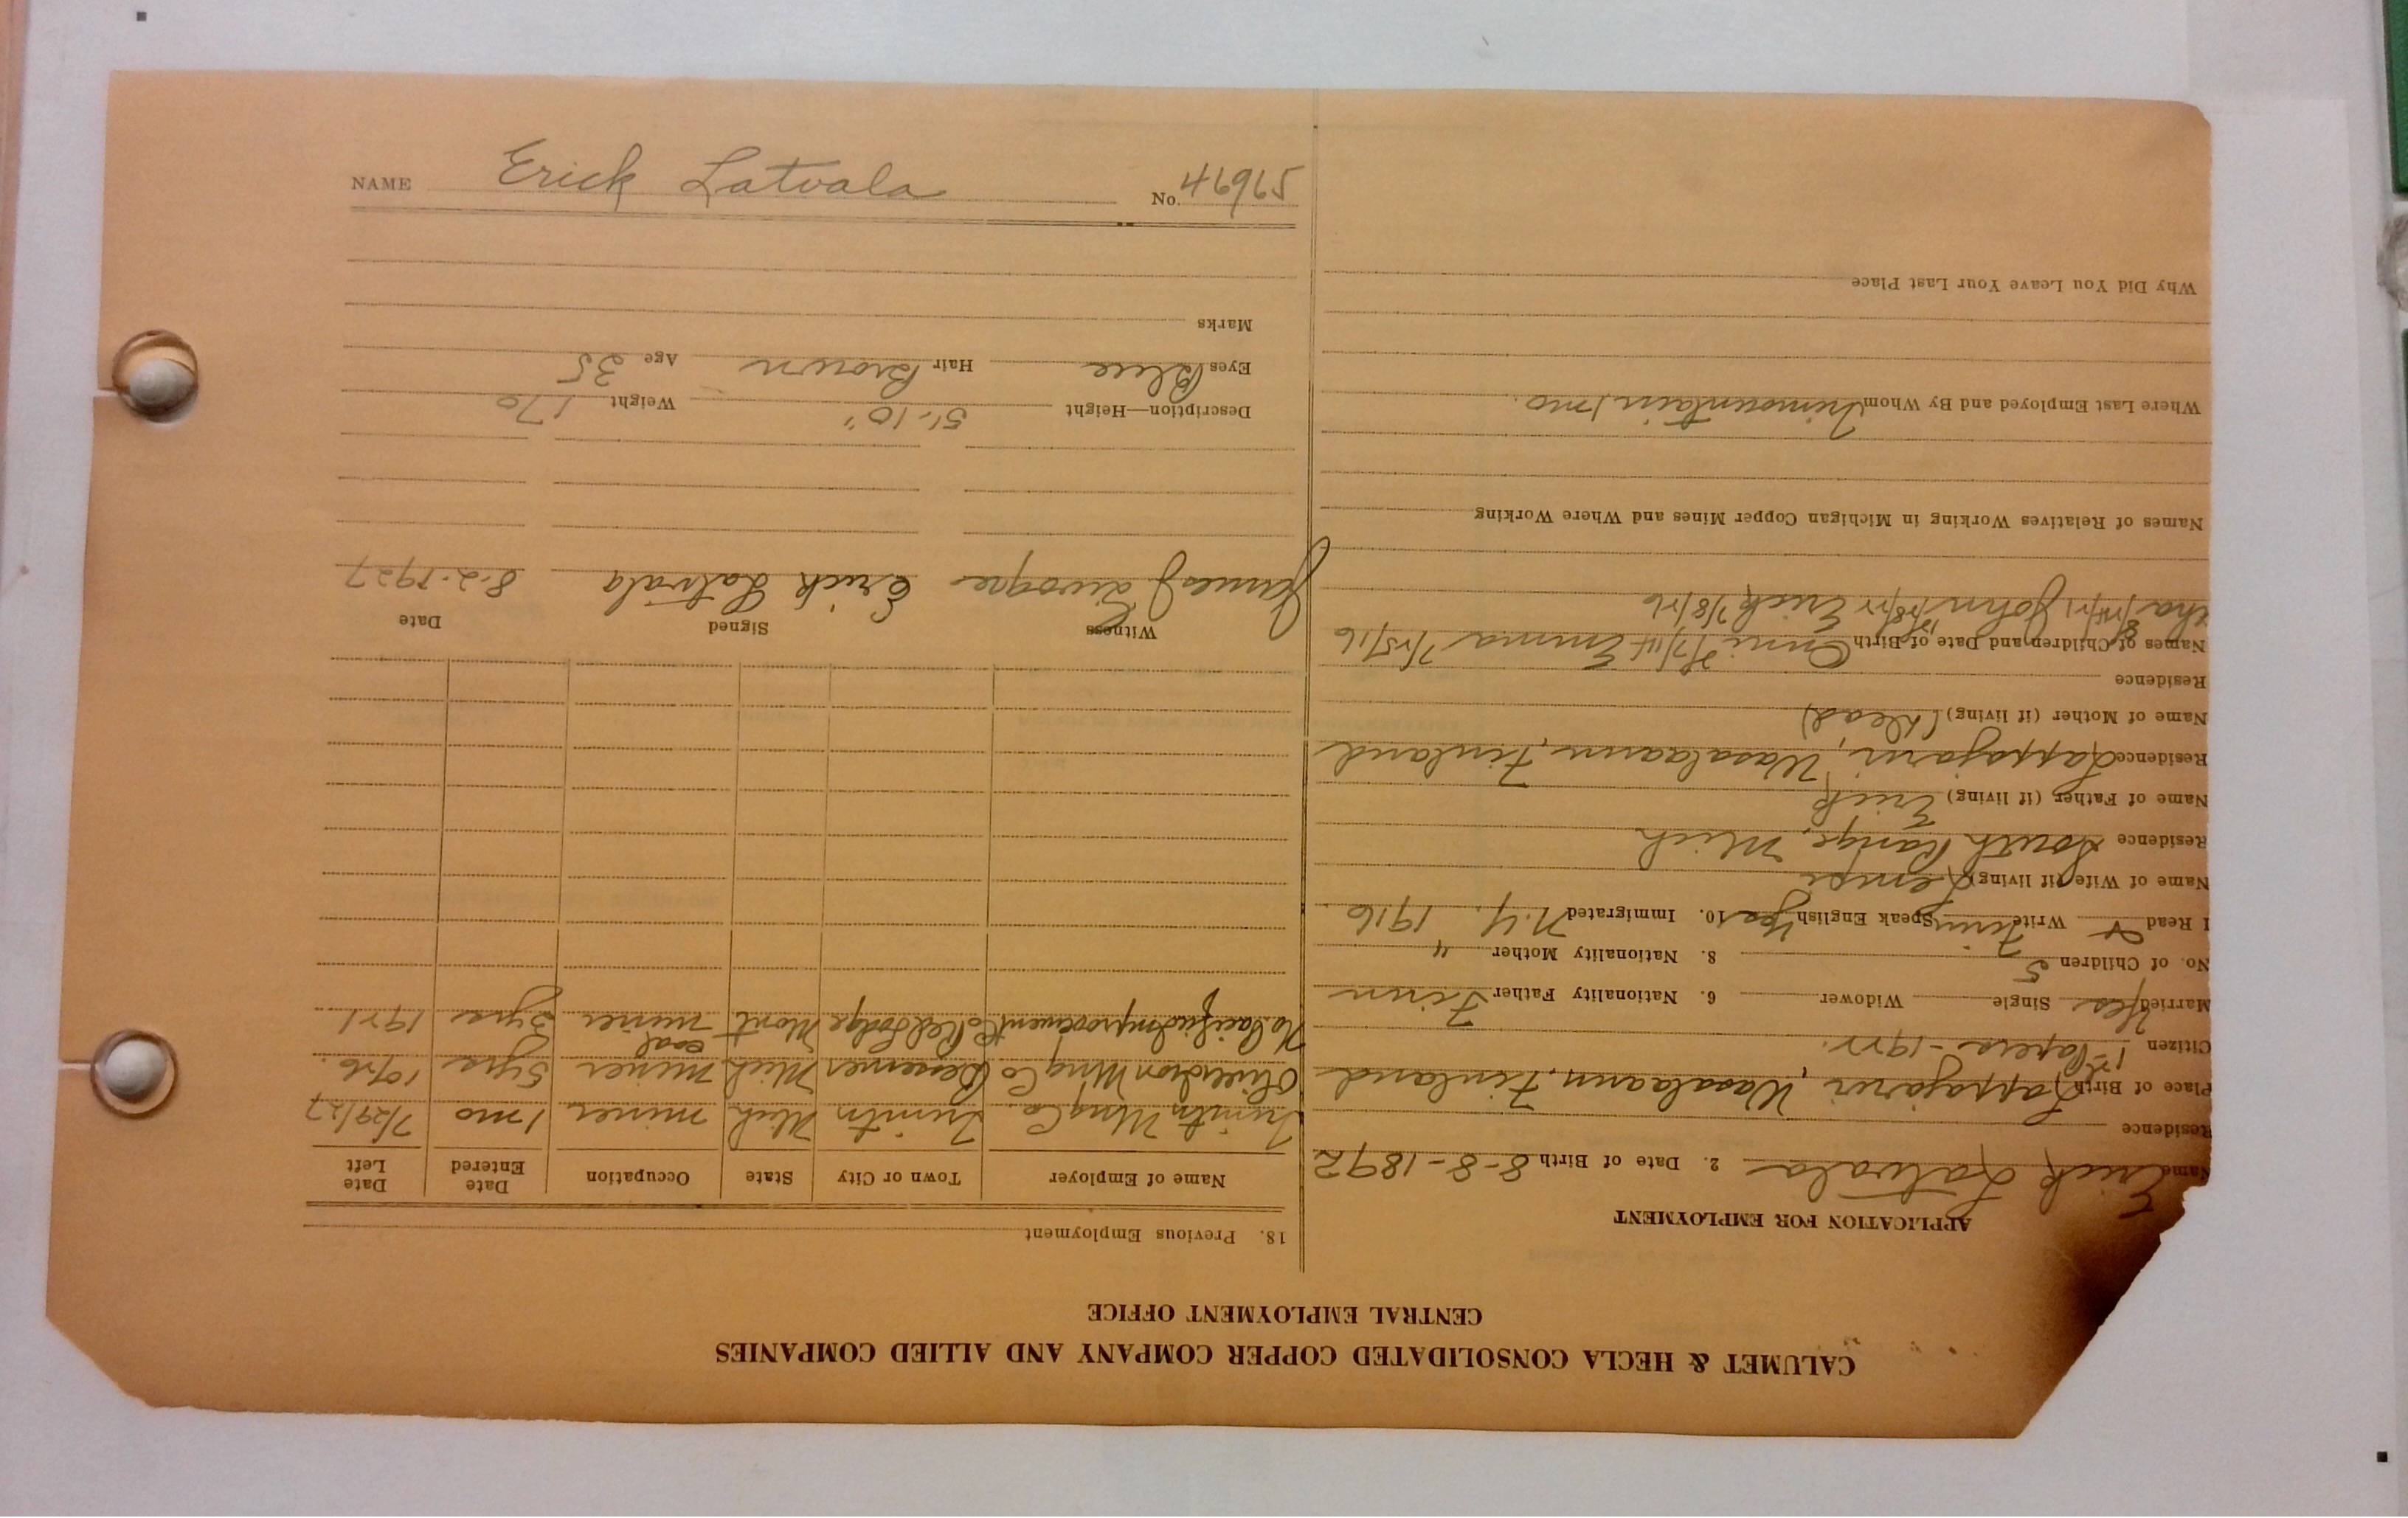 CALUMET & HECLA CONSOLIDATED COPPER COMPANY AND ALLIED COMPANIES
CENTRAL EMPLOYMENT OFFICE
APPLICATION FOR EMPLOYMENT
Name Erick Latvala 2. Date of Birth 8-8-1892
Residence
Place of Birth Lappajarvi, Wasalaann, Finland
Citizen 1st Papers - 1922.
Married Yes Single Widower 6. Nationality Father Finn
No. of Children 5 8. Nationality Mother "
I Read & Write Finn Speak English Yes 10. Immigrated N.Y. 1916.
Name of Wife (if living) Lempi
Residence South Range, Mich
Name of Father (if living) Erick
Residence Lappajarvi, Wasalaann, Finland
Name of Mother (if living) (Dead)
Residence
Names of Children and Date of Birth Emma 7/25/16
John Erick 7/8/26
Names of Relatives Working in Michigan Copper Mines and Where Working
Where Last Employed and By Whom Trimountain, 1 mo.
Why Did You Leave Your Last Place
18. Previous Employment
Name of Employer Town or City State Occupation Date Entered Date Left
Trimtn Mng Co. Trimtn Mich miner 1 mo 7/29/27
Oliver Iron Mng Co Bessemer Mich miner 5 yrs 1926.
No. Pacific Improvement Co Red Lodge Mont coal miner 3 yrs 1921
Witness Signed Date
James Erick Latvala 8-2-1927
Description—Height 5'-10" Weight 170
Eyes Blue Hair Brown Age 35
Marks
NAME Erick Latvala No. 46965